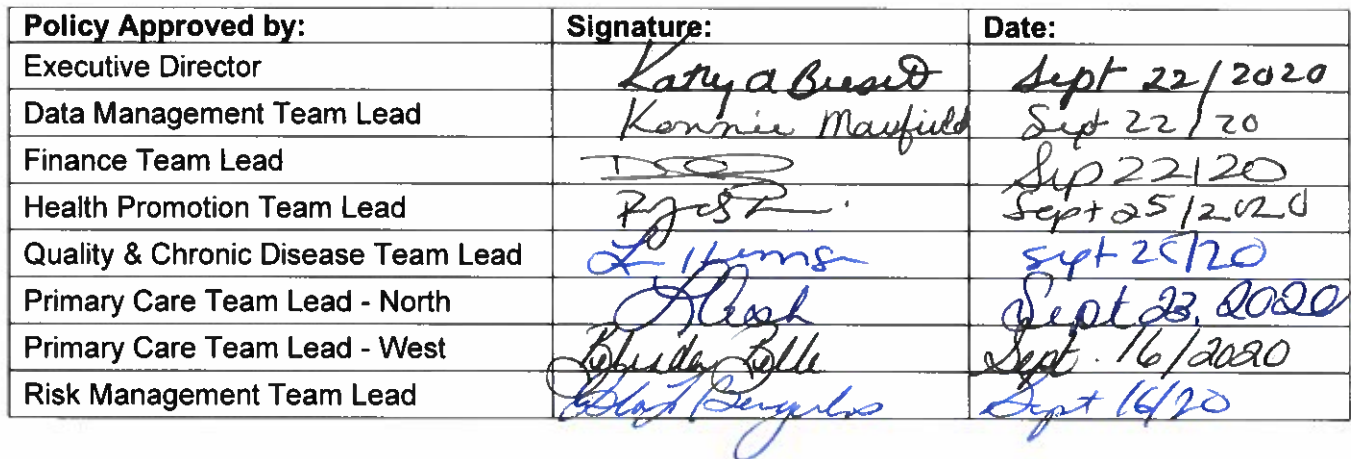 Policy Approved by: Signature: Date:
Executive Director Sept 22/2020
Data Management Team Lead Konnie Mayfield Sept 22/20
Finance Team Lead Sep 22/20
Health Promotion Team Lead Sept 25/2020
Quality & Chronic Disease Team Lead Sept
Primary Care Team Lead - North Sept 23, 2020
Primary Care Team Lead - West Sept. 16/2020
Risk Management Team Lead Sept 16/20